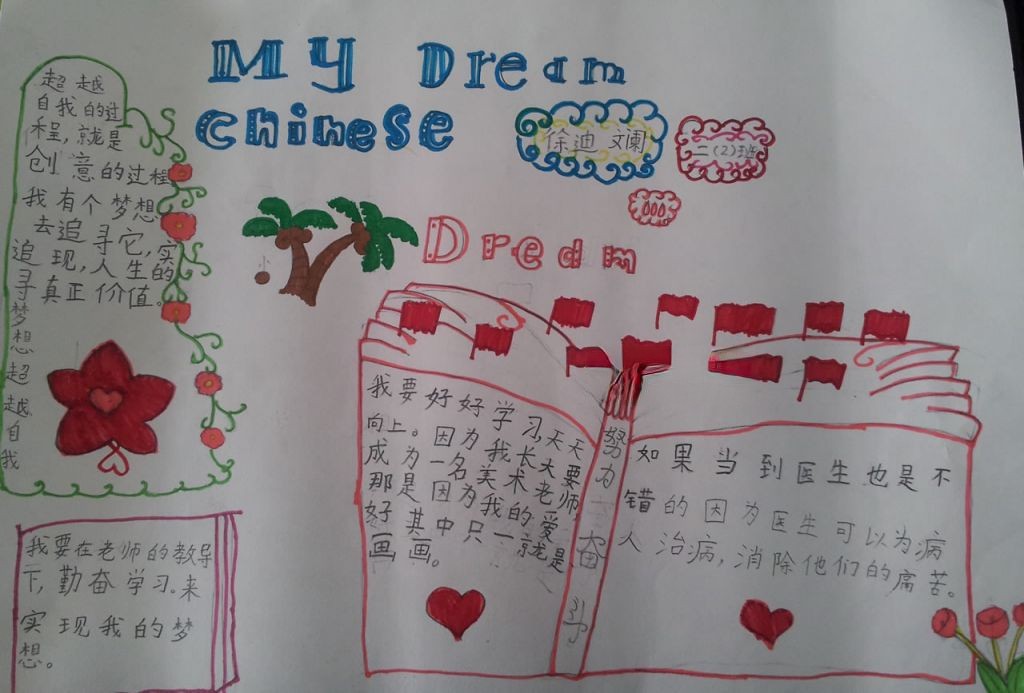 My Dream
Chinese
徐迪文阑
二(2)班
Dream
超越
自我的过
程,就是
创意的过程
我有个梦想
去追寻它,实
现,人生的
真正价值。
追寻梦想超越自我
小
我要好好学习,天天
向上。因为我长大要
成为一名美术老师,
那是因为我的爱
好其中只一就是
画画。
努力奋斗
如果当到医生也是不
错的因为医生可以为病
人治病,消除他们的痛苦。
我要在老师的教导
下,勤奋学习。来
实现我的梦
想。